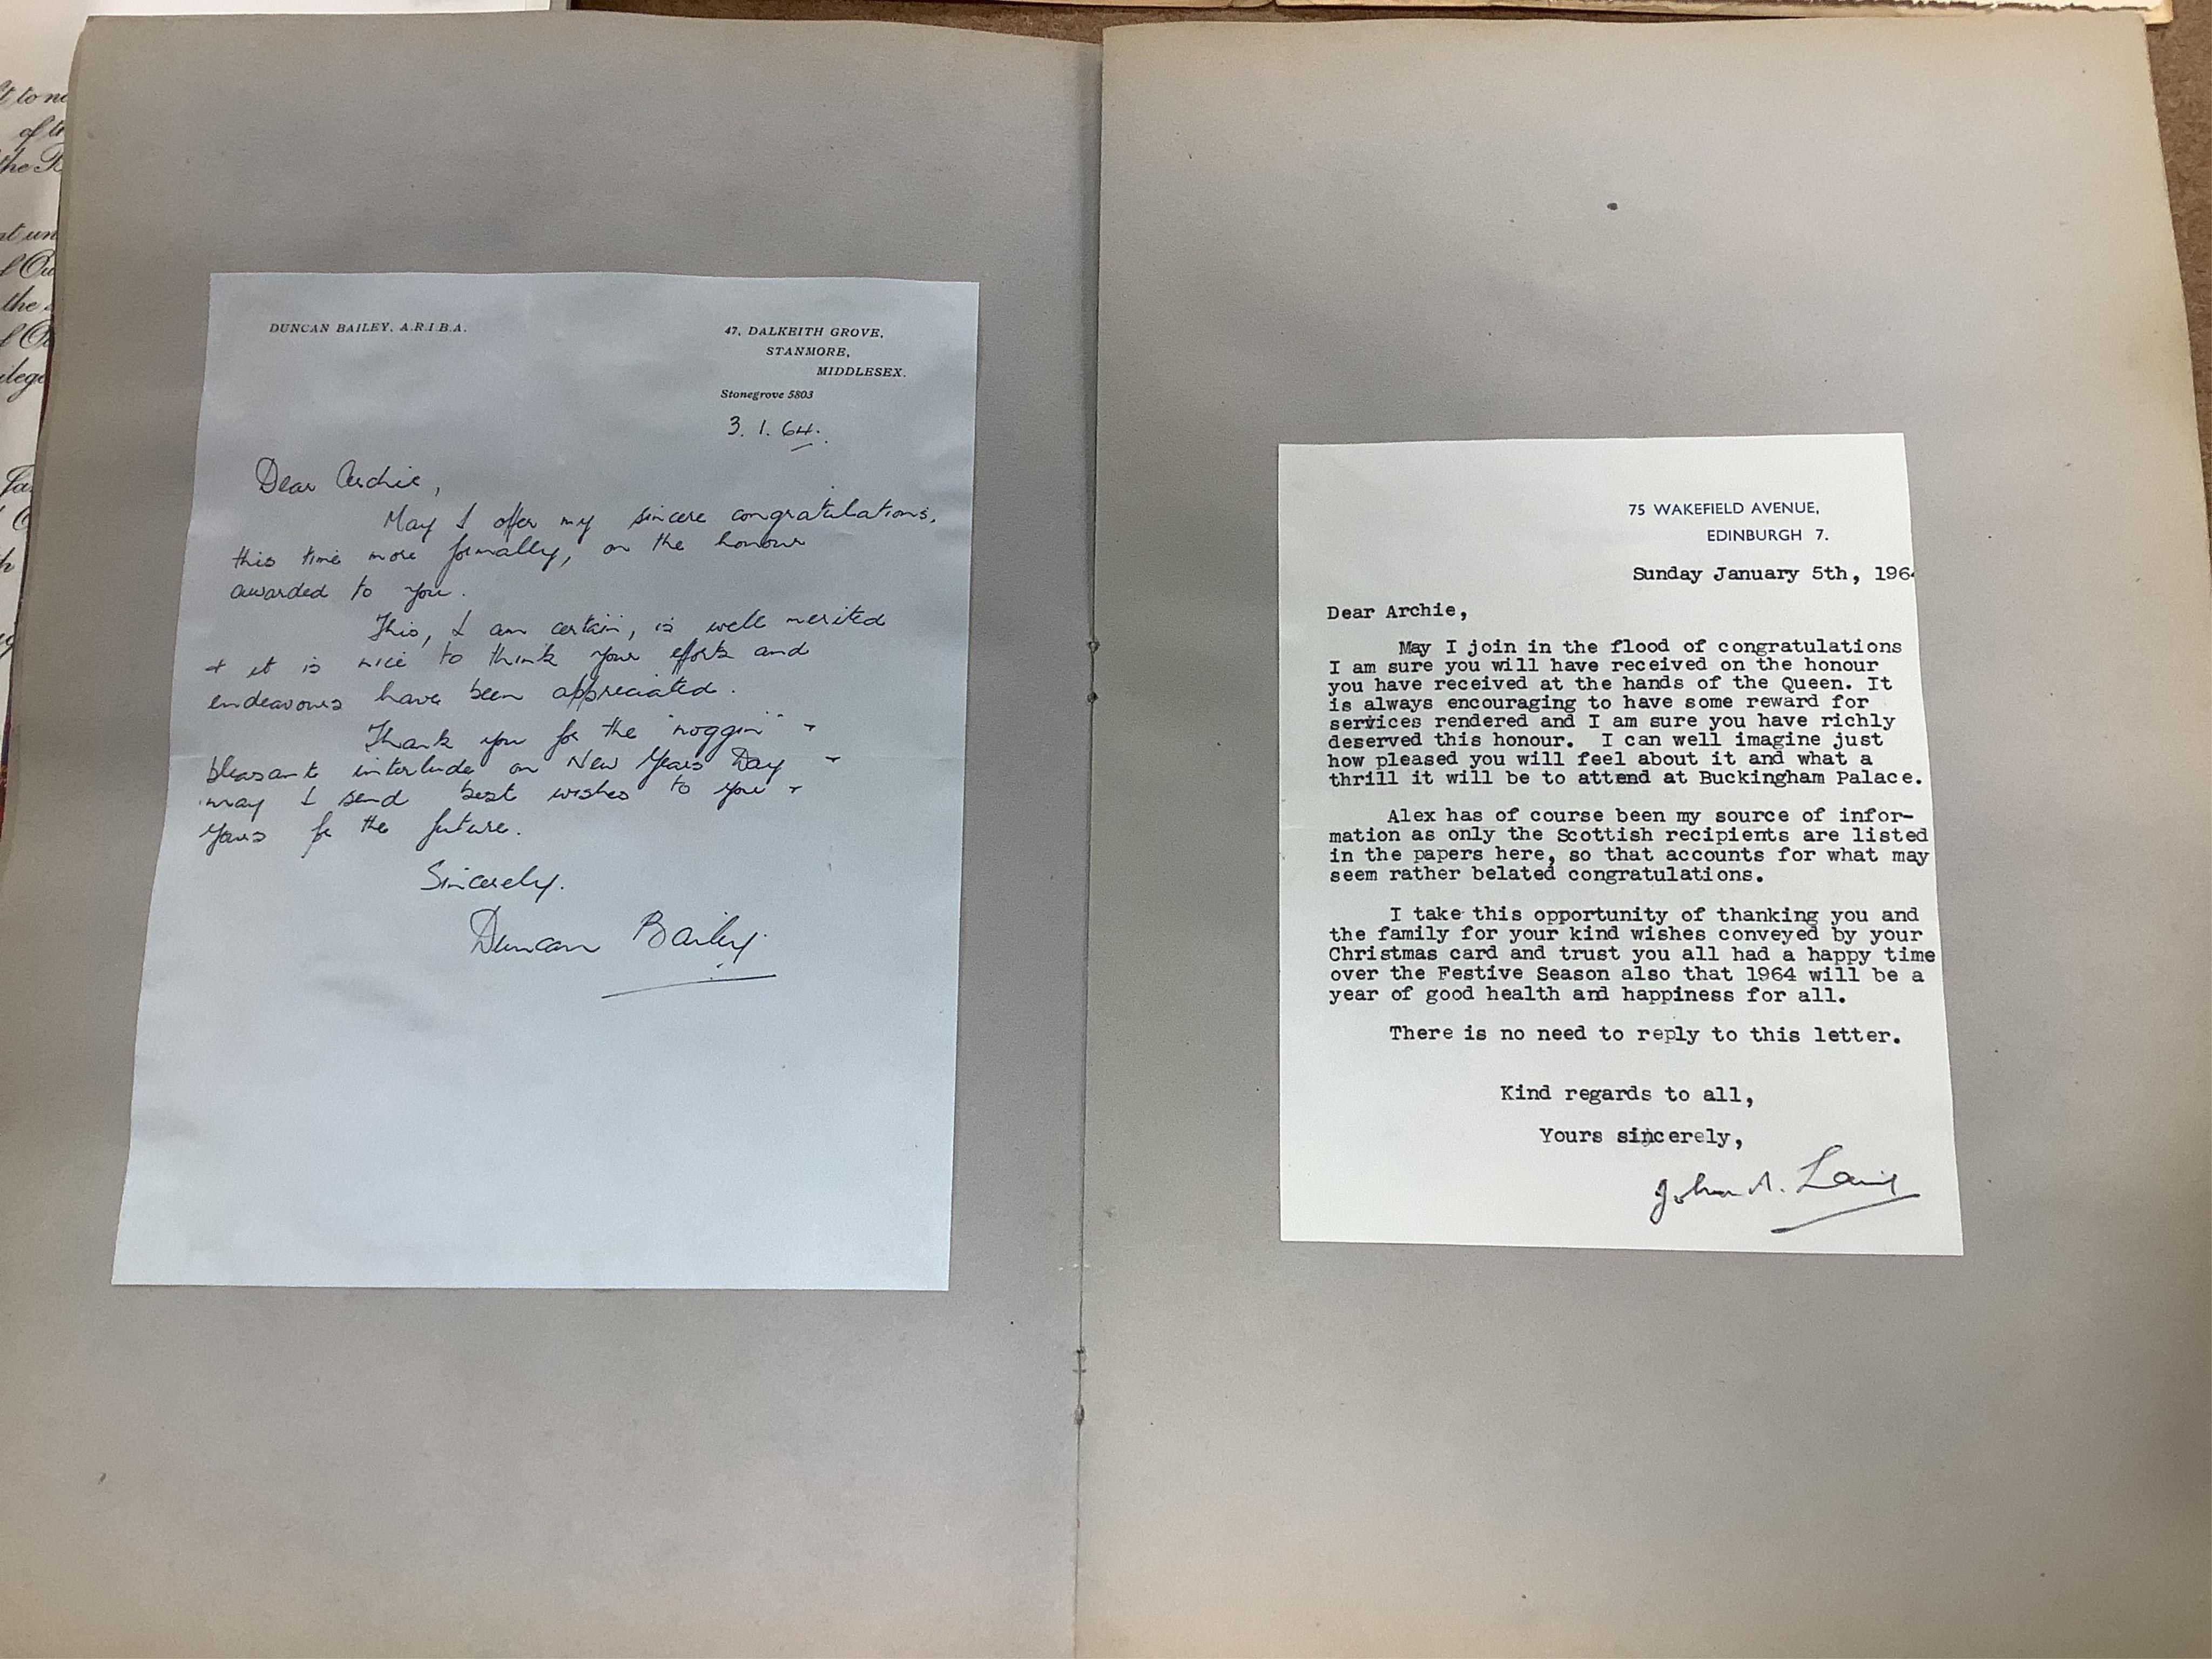 DUNCAN BAILEY, A.R.I.B.A.
47, DALKEITH GROVE,
STANMORE,
MIDDLESEX.
Stonegrove 5803
3. 1. 64.
Dear Archie,
May I offer my sincere congratulations,
this time more formally, on the honour
awarded to you.
This, I am certain, is well merited
+ it is nice to think your efforts and
endeavours have been appreciated.
Thank you for the "noggin" +
pleasant interlude on New Years Day -
may I send best wishes to you +
yours for the future.
Sincerely.
Duncan Bailey.
75 WAKEFIELD AVENUE,
EDINBURGH 7.
Sunday January 5th, 1964
Dear Archie,
May I join in the flood of congratulations
I am sure you will have received on the honour
you have received at the hands of the Queen. It
is always encouraging to have some reward for
services rendered and I am sure you have richly
deserved this honour. I can well imagine just
how pleased you will feel about it and what a
thrill it will be to attend at Buckingham Palace.
Alex has of course been my source of infor-
mation as only the Scottish recipients are listed
in the papers here, so that accounts for what may
seem rather belated congratulations.
I take this opportunity of thanking you and
the family for your kind wishes conveyed by your
Christmas card and trust you all had a happy time
over the Festive Season also that 1964 will be a
year of good health and happiness for all.
There is no need to reply to this letter.
Kind regards to all,
Yours sincerely,
John A.